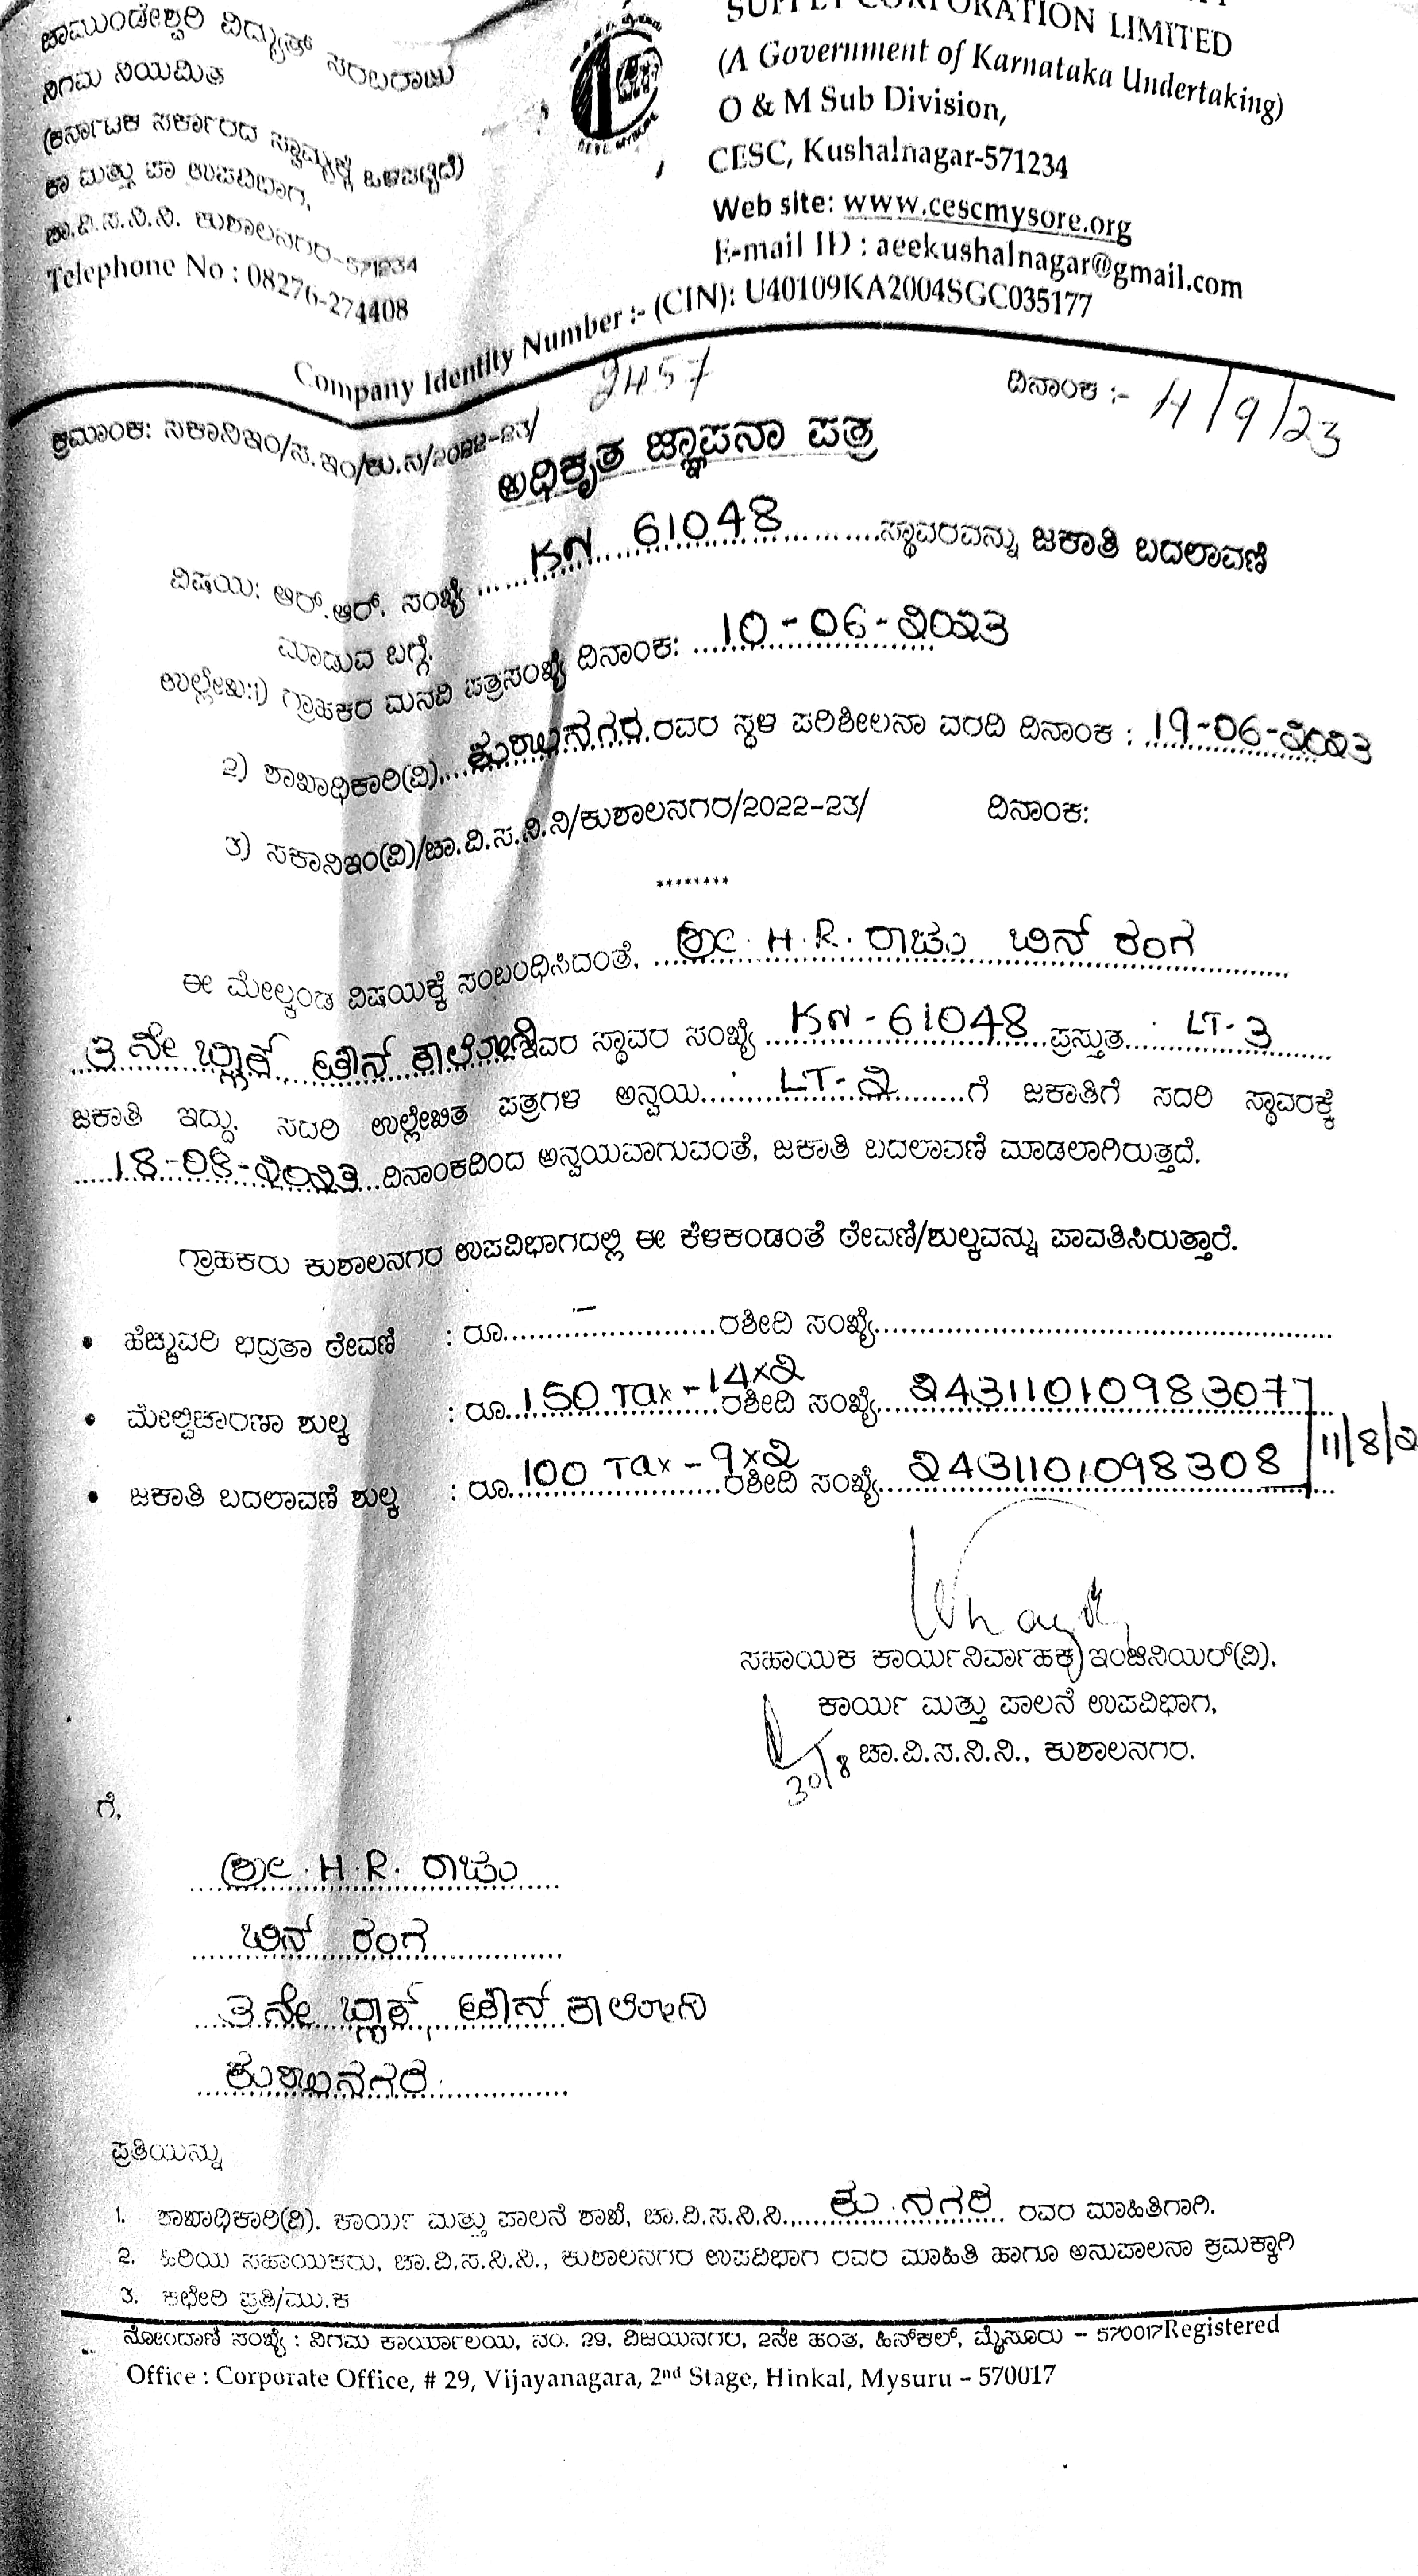 ಚಾಮುಂಡೇಶ್ವರಿ ವಿದ್ಯುತ್ ಸರಬರಾಜು
ನಿಗಮ ನಿಯಮಿತ
(ಕರ್ನಾಟಕ ಸರ್ಕಾರದ ಸ್ವಾಮ್ಯಕ್ಕೆ ಒಳಪಟ್ಟಿದೆ)
ಕಾ ಮತ್ತು ಪಾ ಉಪವಿಭಾಗ,
ಚಾ.ವಿ.ಸ.ನಿ.ನಿ. ಕುಶಾಲನಗರ-571234
Telephone No : 08276-274408
SUPPLY CORPORATION LIMITED
(A Government of Karnataka Undertaking)
O & M Sub Division,
CESC, Kushalnagar-571234
Web site: www.cescmysore.org
E-mail ID : aeekushalnagar@gmail.com
Company Identity Number :- (CIN): U40109KA2004SGC035177
ಕ್ರಮಾಂಕ: ಸಕಾನಿಇಂ/ಸ.ಇಂ/ಕು.ನ/೨೦೨೨-೨೩/ 2457 ದಿನಾಂಕ :- 4/9/23
ಅಧಿಕೃತ ಜ್ಞಾಪನಾ ಪತ್ರ
ವಿಷಯ: ಆರ್.ಆರ್. ಸಂಖ್ಯೆ ...... KN 61048 .......... ಸ್ಥಾವರವನ್ನು ಜಕಾತಿ ಬದಲಾವಣೆ
ಮಾಡುವ ಬಗ್ಗೆ.
ಉಲ್ಲೇಖ:೧) ಗ್ರಾಹಕರ ಮನವಿ ಪತ್ರಸಂಖ್ಯೆ ದಿನಾಂಕ: ..10-06-೨೦೨೩
೨) ಶಾಖಾಧಿಕಾರಿ(ವಿ)....ಕುಶಾಲನಗರ.ರವರ ಸ್ಥಳ ಪರಿಶೀಲನಾ ವರದಿ ದಿನಾಂಕ : 19-06-೨೦೨೩
೩) ಸಕಾನಿಇಂ(ವಿ)/ಚಾ.ವಿ.ಸ.ನಿ.ನಿ/ಕುಶಾಲನಗರ/2022-23/ ದಿನಾಂಕ:
********
ಈ ಮೇಲ್ಕಂಡ ವಿಷಯಕ್ಕೆ ಸಂಬಂಧಿಸಿದಂತೆ, ..ಶ್ರೀ. H.R. ರಾಜು ಬಿನ್ ರಂಗ
೩ ನೇ ಬ್ಲಾಕ್, ಟೌನ್ ಕಾಲೋನಿ ಇವರ ಸ್ಥಾವರ ಸಂಖ್ಯೆ ..KN-61048 ಪ್ರಸ್ತುತ.... LT-3
ಜಕಾತಿ ಇದ್ದು, ಸದರಿ ಉಲ್ಲೇಖಿತ ಪತ್ರಗಳ ಅನ್ವಯ..... LT-೨ .......ಗೆ ಜಕಾತಿಗೆ ಸದರಿ ಸ್ಥಾವರಕ್ಕೆ
..18-08-೨೦೨೩..ದಿನಾಂಕದಿಂದ ಅನ್ವಯವಾಗುವಂತೆ, ಜಕಾತಿ ಬದಲಾವಣೆ ಮಾಡಲಾಗಿರುತ್ತದೆ.
ಗ್ರಾಹಕರು ಕುಶಾಲನಗರ ಉಪವಿಭಾಗದಲ್ಲಿ ಈ ಕೆಳಕಂಡಂತೆ ಠೇವಣಿ/ಶುಲ್ಕವನ್ನು ಪಾವತಿಸಿರುತ್ತಾರೆ.
• ಹೆಚ್ಚುವರಿ ಭದ್ರತಾ ಠೇವಣಿ : ರೂ........ — ........ರಶೀದಿ ಸಂಖ್ಯೆ........................
• ಮೇಲ್ವಿಚಾರಣಾ ಶುಲ್ಕ : ರೂ..150 Tax - 14x೨ ರಶೀದಿ ಸಂಖ್ಯೆ... ೨431101098307
• ಜಕಾತಿ ಬದಲಾವಣೆ ಶುಲ್ಕ : ರೂ..100 Tax - 9x೨ ರಶೀದಿ ಸಂಖ್ಯೆ... ೨431101098308 11/8/೨
ಸಹಾಯಕ ಕಾರ್ಯನಿರ್ವಾಹಕ ಇಂಜಿನಿಯರ್(ವಿ),
ಕಾರ್ಯ ಮತ್ತು ಪಾಲನೆ ಉಪವಿಭಾಗ,
30/8 ಚಾ.ವಿ.ಸ.ನಿ.ನಿ., ಕುಶಾಲನಗರ.
ಗೆ,
ಶ್ರೀ. H.R. ರಾಜು
ಬಿನ್ ರಂಗ
೩ ನೇ ಬ್ಲಾಕ್, ಟೌನ್ ಕಾಲೋನಿ
ಕುಶಾಲನಗರ.
ಪ್ರತಿಯನ್ನು
1. ಶಾಖಾಧಿಕಾರಿ(ವಿ). ಕಾರ್ಯ ಮತ್ತು ಪಾಲನೆ ಶಾಖೆ, ಚಾ.ವಿ.ಸ.ನಿ.ನಿ.,...ಕು.ನಗರ... ರವರ ಮಾಹಿತಿಗಾಗಿ.
2. ಹಿರಿಯ ಸಹಾಯಕರು, ಚಾ.ವಿ.ಸ.ನಿ.ನಿ., ಕುಶಾಲನಗರ ಉಪವಿಭಾಗ ರವರ ಮಾಹಿತಿ ಹಾಗೂ ಅನುಪಾಲನಾ ಕ್ರಮಕ್ಕಾಗಿ
3. ಕಛೇರಿ ಪ್ರತಿ/ಮು.ಕ
ನೋಂದಾಣಿ ಸಂಖ್ಯೆ : ನಿಗಮ ಕಾರ್ಯಾಲಯ, ನಂ. 29, ವಿಜಯನಗರ, 2ನೇ ಹಂತ, ಹಿನ್‌ಕಲ್, ಮೈಸೂರು – 570017Registered
Office : Corporate Office, # 29, Vijayanagara, 2nd Stage, Hinkal, Mysuru – 570017